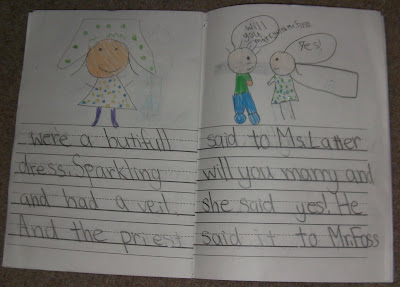 were a butifull
dress. Sparkling
and had a veil.
And the priest
will
you
marry me Ms Foss
Yes!
said to Ms. Latter
will you marry and
she said yes! He
said it to Mr. Foss